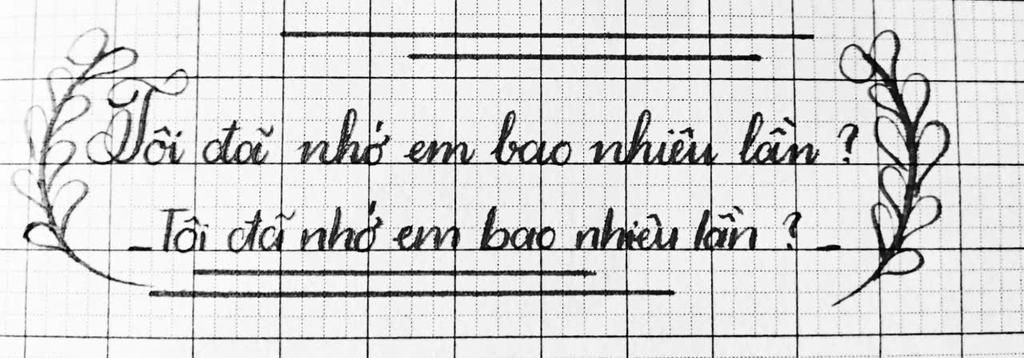 Tôi đã nhớ em bao nhiêu lần ?
_Tôi đã nhớ em bao nhiêu lần ? _